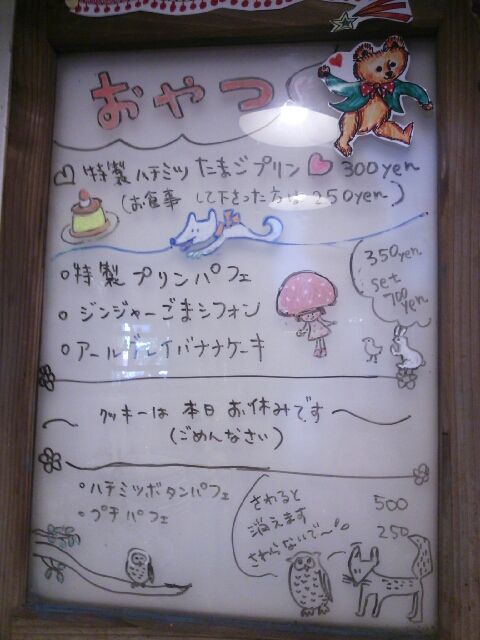 おやつ
特製ハチミツたまごプリン 300yen
(お食事して下さった方は250yen)
・特製プリンパフェ
・ジンジャーごまシフォン
・アールグレイバナナケーキ
350yen
set
700yen
クッキーは本日お休みです
(ごめんなさい)
・ハチミツボタンパフェ 500
・プチパフェ 250
さわると
消えます
さわらないで〜